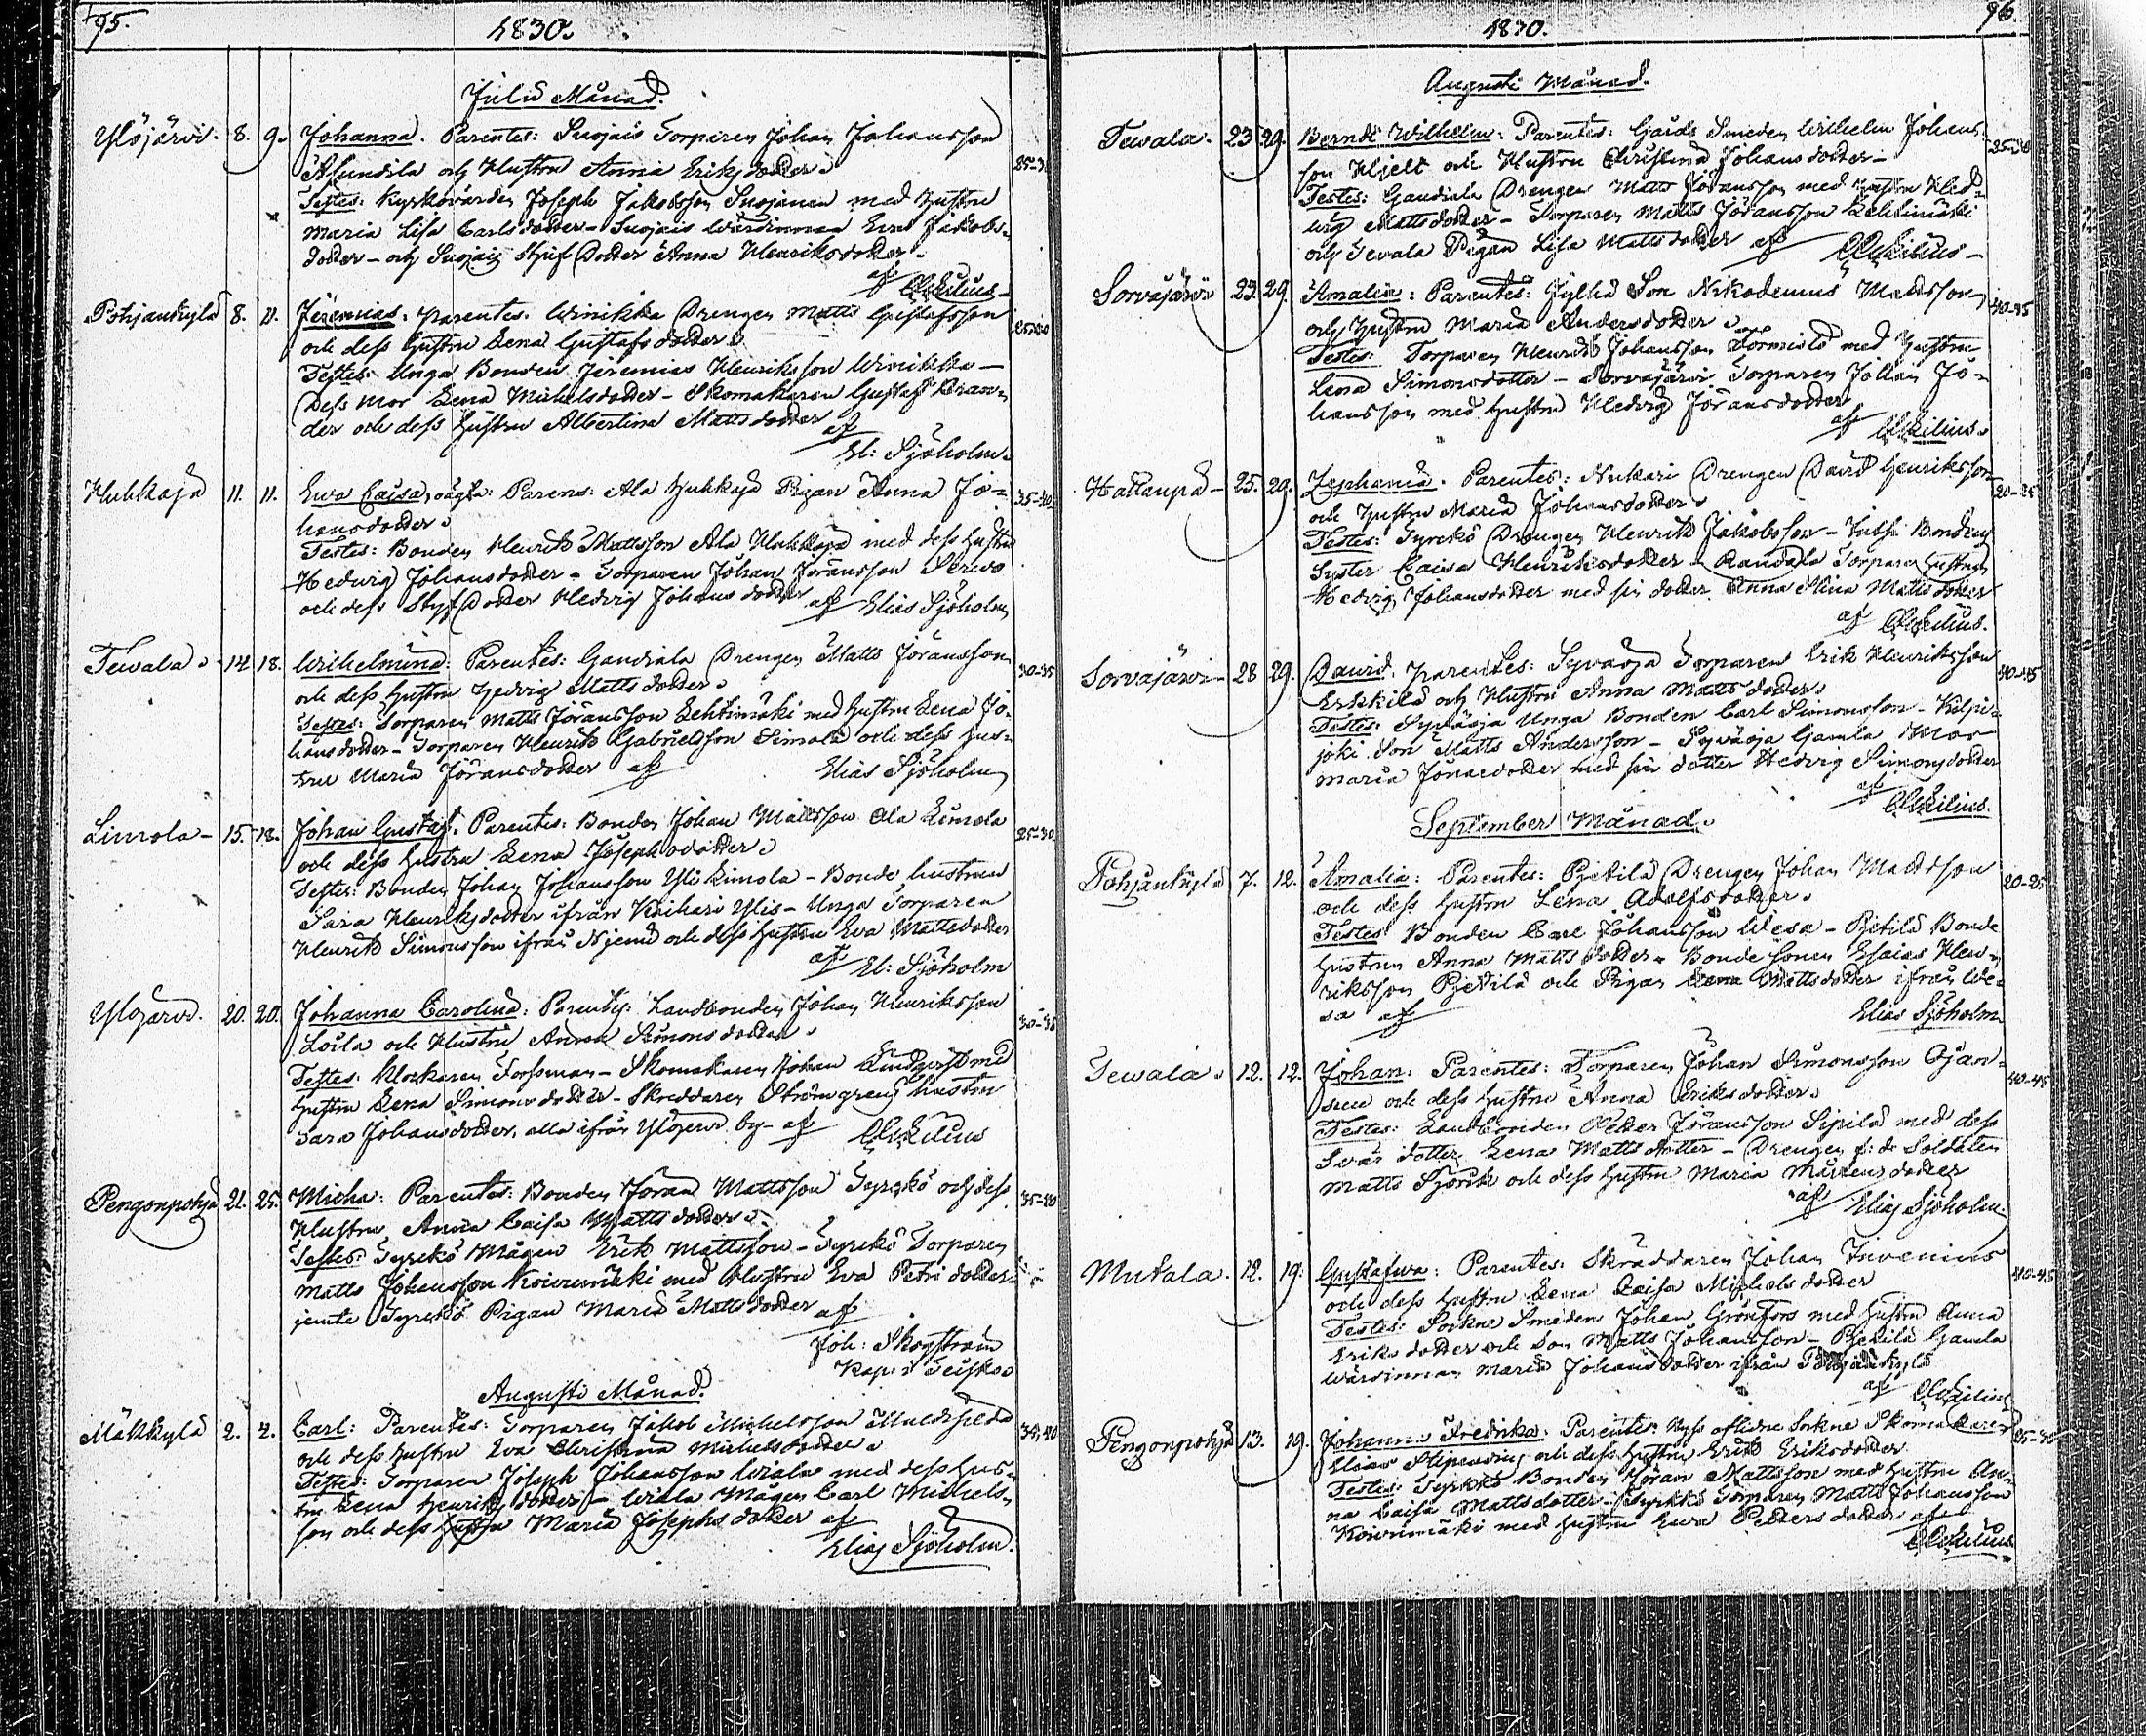 95.
1830.
Julii Månad.
Ylöjärvi. 8. 9. Johanna. Parentes: Suojais Torparen Johan Johansson
och Hustru Anna Eriksdotter. 25-3
Testes: Kyrkovärden Joseph Jakobsson Suojanen med hustru
Maria Lisa Carlsdotter - Suojais Wärdinnan Eva Jakobs-
dotter - och Suojais Styf Dotter Anna Henriksdotter.
af
Pohjankylä 8. 11. Jeremias. Parentes: Winikka Drengen Matts Gustafsson 25-30
och dess hustru Lena Gustafsdotter.
Testes: Unga Bonden Jeremias Henriksson Winikka -
Dess Mor Lena Michelsdotter - Skomakaren Gustaf Bran-
der och dess hustru Albertina Mattsdotter af
El: Sjöholm.
Huhkaja 11. 11. Ewa Caisa, oägta: Parens: Ala Huhkaja Pigan Anna Jo- 35-40
hansdotter.
Testes: Bonden Henrik Mattsson Ala Huhkaja med dess hustru
Hedwig Johansdotter - Torparen Johan Jöransson
och dess Styf Dotter Hedvig Johansdotter af Elias Sjöholm
Tewala. 14. 18. Wilhelmina: Parentes: Gandiala Drengen Matts Jöransson 30-35
och dess hustru Hedvig Mattsdotter.
Testes: Torparen Matts Jöransson Lehtimäki med hustru Lena Jo-
hansdotter - Torparen Henrik Gabrielsson Simola och dess hus-
tru Maria Jöransdotter af Elias Sjöholm
Limola - 15. 18. Johan Gustaf. Parentes: Bonden Johan Mattsson Ala Limola 25-30
och dess hustru Lena Josephsdotter.
Testes: Bonden Johan Johansson Yli Limola - Bonde hustrun
Sara Henriksdotter ifrån Keihari Ylis - Unga Torparen
Henrik Simonsson ifrån och dess hustru Eva Mattsdotter
af El: Sjöholm
Ylöjervi. 20. 20. Johanna Carolina: Parentes: Landbonden Johan Henriksson 30-35
Loila och Hustru Anna Simonsdotter.
Testes: Klockaren Forssman - Skomakaren Johan Lindqvist med
hustru Lena Simonsdotter - Skreddaren Strömgrens hustru
Sara Johansdotter, alla ifrån Ylöjervi by - af
Pengonpohja 21. 25. Micha: Parentes: Bonden Jöran Mattsson Tyrckö och dess 35-40
Hustru Anna Caisa Mattsdotter.
Testes: Tyrckö Mågen Erik Mattsson - Tyrckö Torparen
Matts Johansson Koivumäki med Hustru Eva Petri dotter
jemte Tyrckö Pigan Maria Mattsdotter af
Joh: Skogström
Kap: i Teisko
Augusti Månad.
Mäkkylä 2. 4. Carl: Parentes: Torparen Jakob Michelsson
och dess hustru Eva Christina Michelsdotter.
Testes: Torparen Joseph Johansson Wiala med dess hus-
tru Lena Henriksdotter - Wiala Mågen Carl Michels-
son och dess hustru Maria Josephsdotter af
Elias Sjöholm.
96.
1830.
Augusti Månad.
Tewala. 23 29. Berndt Wilhelm: Parentes: Gårds Smeden Wilhelm Johans- 25-30
son Hjelt och Hustru Christina Johansdotter -
Testes: Gandiala Drengen Matts Jöransson med hustru Hed-
wig Mattsdotter - Torparen Matts Jöransson Lehtimäki
och Tevala Pigan Lisa Mattsdotter af
Sorvajärvi 23. 29. Amalia: Parentes: Son Nikodemus Mattsson 40-45
och hustru Maria Andersdotter.
Testes: Torparen Henrik Johansson med hustru
Lena Simonsdotter - Sorvajärvi Torparen Johan Jo-
hansson med hustru Hedvig Jöransdotter
af
25. 29. Zephania. Parentes: Nukari Drengen David Henriksson 20-25
och hustru Maria Johansdotter.
Testes: Tyrckö Drengen Henrik Jakobsson - Bonden
Syster Caisa Henriksdotter - Torpare hustrun
Hedvig Johansdotter med sin dotter Anna Stina Mattsdotter
af
Sorvajärvi - 28 29. David. Parentes: Syväoja Torparen Erik Henriksson 40-45
Erkkilä och Hustru Anna Mattsdotter.
Testes: Syväoja Unga Bonden Carl Simonsson - Kilpi-
joki Son Matts Andersson - Syväoja Gamla Mor
Maria med sin dotter Hedvig Simonsdotter
af
September Månad.
Pohjankylä 7. 12. Amalia: Parentes: Pjetilä Drengen Johan Mattsson 20-25
och dess hustru Lena Adolfsdotter.
Testes: Bonden Carl Johansson Wesa - Pjetilä Bonde
hustrun Anna Mattsdotter - Bonde sonen Esaias Hen-
riksson Pjetilä och Pigan Lena Mattsdotter ifrån We-
sa af Elias Sjöholm
Tewala. 12. 12. Johan: Parentes: Torparen Johan Simonsson Ojan- 40-45
suu och dess hustru Anna Eriksdotter.
Testes: Landbonden Petter Jöransson Sipilä med dess
Svär dotter Lena Mattsdotter - Drengen f: d: Soldaten
Matts och dess hustru Maria Mårtensdotter
af Elias Sjöholm.
Mutala. 12. 19. Gustafwa: Parentes: Skräddaren Johan Juvenius 40-45
och dess hustru Lena Caisa Michelsdotter
Testes: Sockne Smeden Johan Grönfors med hustru Anna
Eriksdotter och Son Matts Johansson - Pjetilä Gamla
Wärdinnan Maria Johansdotter ifrån Pohjankylä
af
Pengonpohja 13. 19. Johanna Fredrika: Parentes: Nyss aflidne Sokne Skomakaren
Elias och dess hustru Eriksdotter
Testes: Tyrckö Bonden Jöran Mattsson med hustru An-
na Caisa Mattsdotter - Tyrckö Torparen Matts Johansson
Koivumäki med hustru Ewa Pettersdotter af